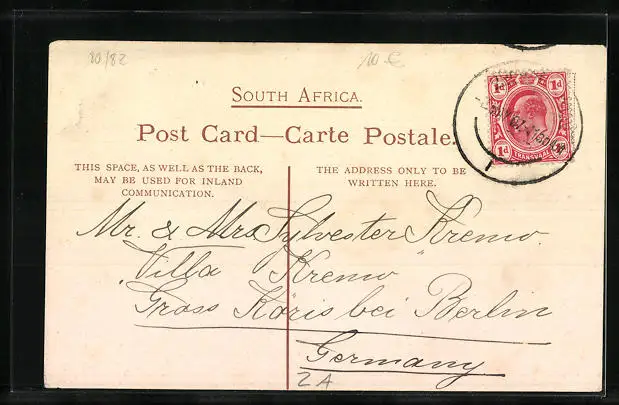 20/82
10.-€
SOUTH AFRICA.
1d 1d
Post Card—Carte Postale.
1d 1d
TRANSVAAL
THIS SPACE, AS WELL AS THE BACK,
MAY BE USED FOR INLAND
COMMUNICATION.
THE ADDRESS ONLY TO BE
WRITTEN HERE.
Mr. & Mrs Sylvester Kremo.
Villa "Kremo"
Gross Köris bei Berlin
Germany
2A